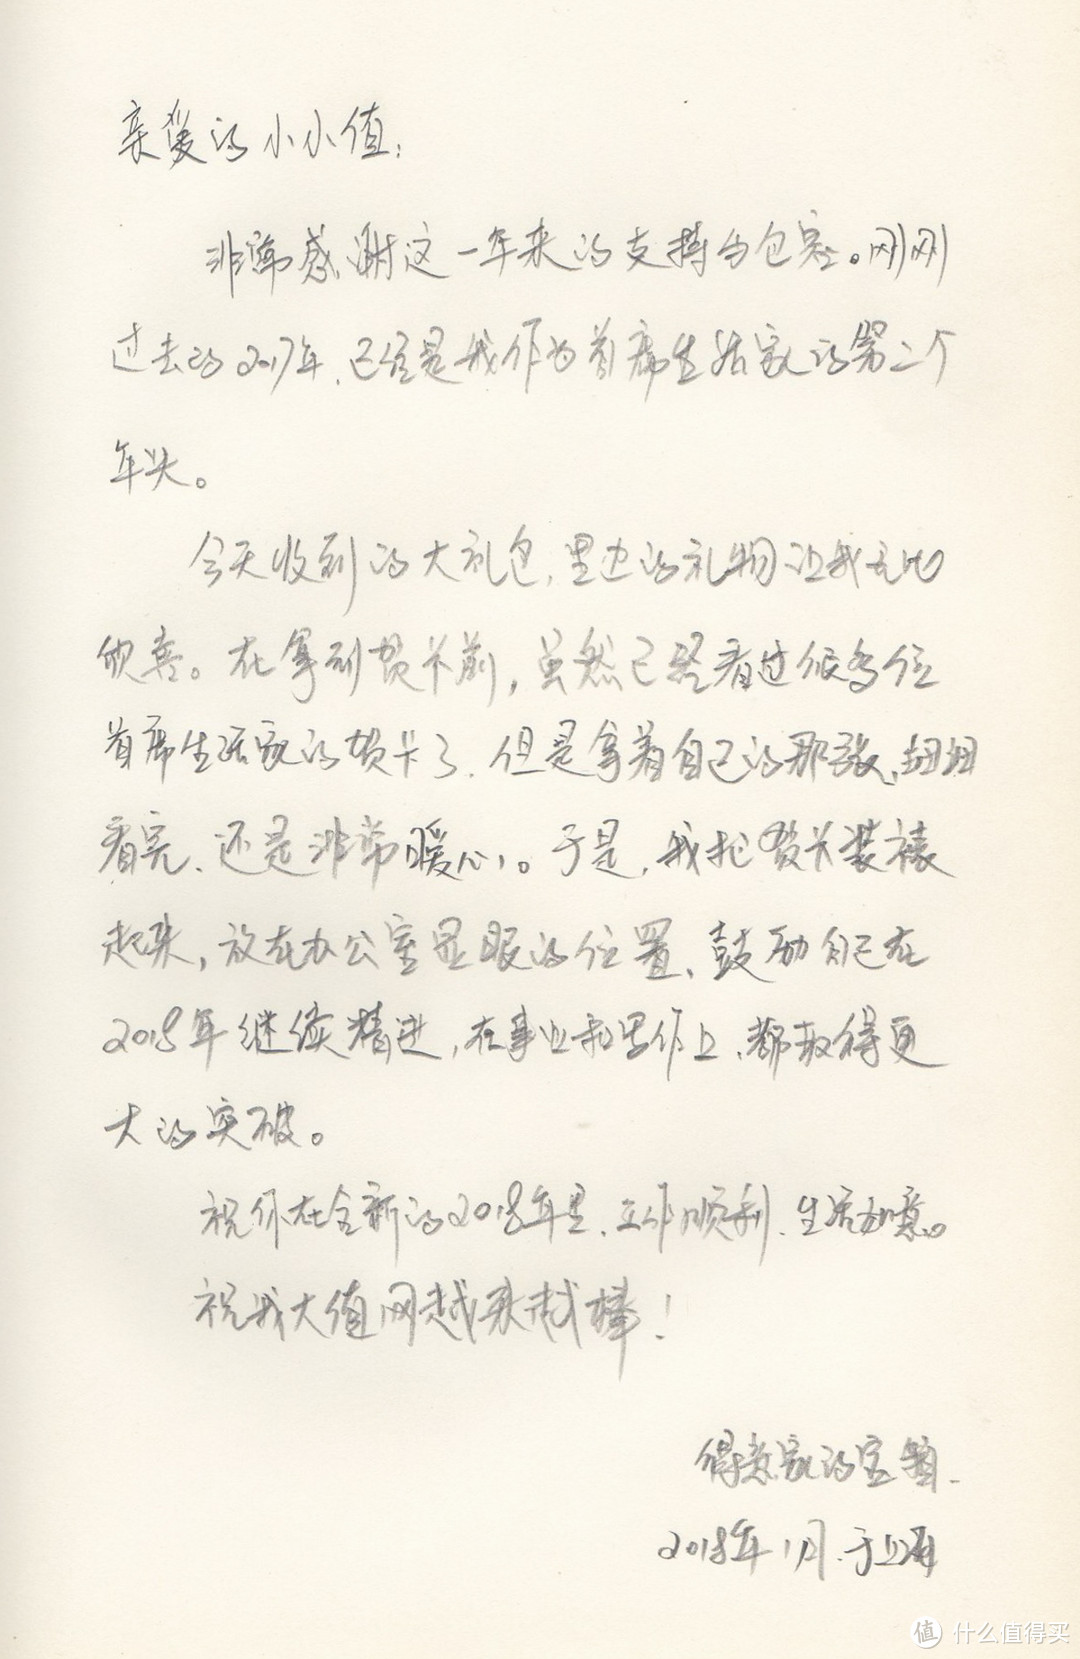 亲爱的小小值：
非常感谢这一年来的支持与包容。刚刚
过去的2017年，已经是我作为首席生活家的第二个
年头。
今天收到的大礼包，里边的礼物让我无比
欣喜。在拿到贺卡前，虽然已经看过很多位
首席生活家的贺卡了，但是拿着自己的那张，细细
看完，还是非常暖心。于是，我把贺卡装裱
起来，放在办公室显眼的位置，鼓励自己在
2018年继续精进，在事业和写作上，都取得更
大的突破。
祝你在全新的2018年里，工作顺利，生活如意。
祝我大值网越来越棒！
得意家的
2018年1月．于上海
值 什么值得买